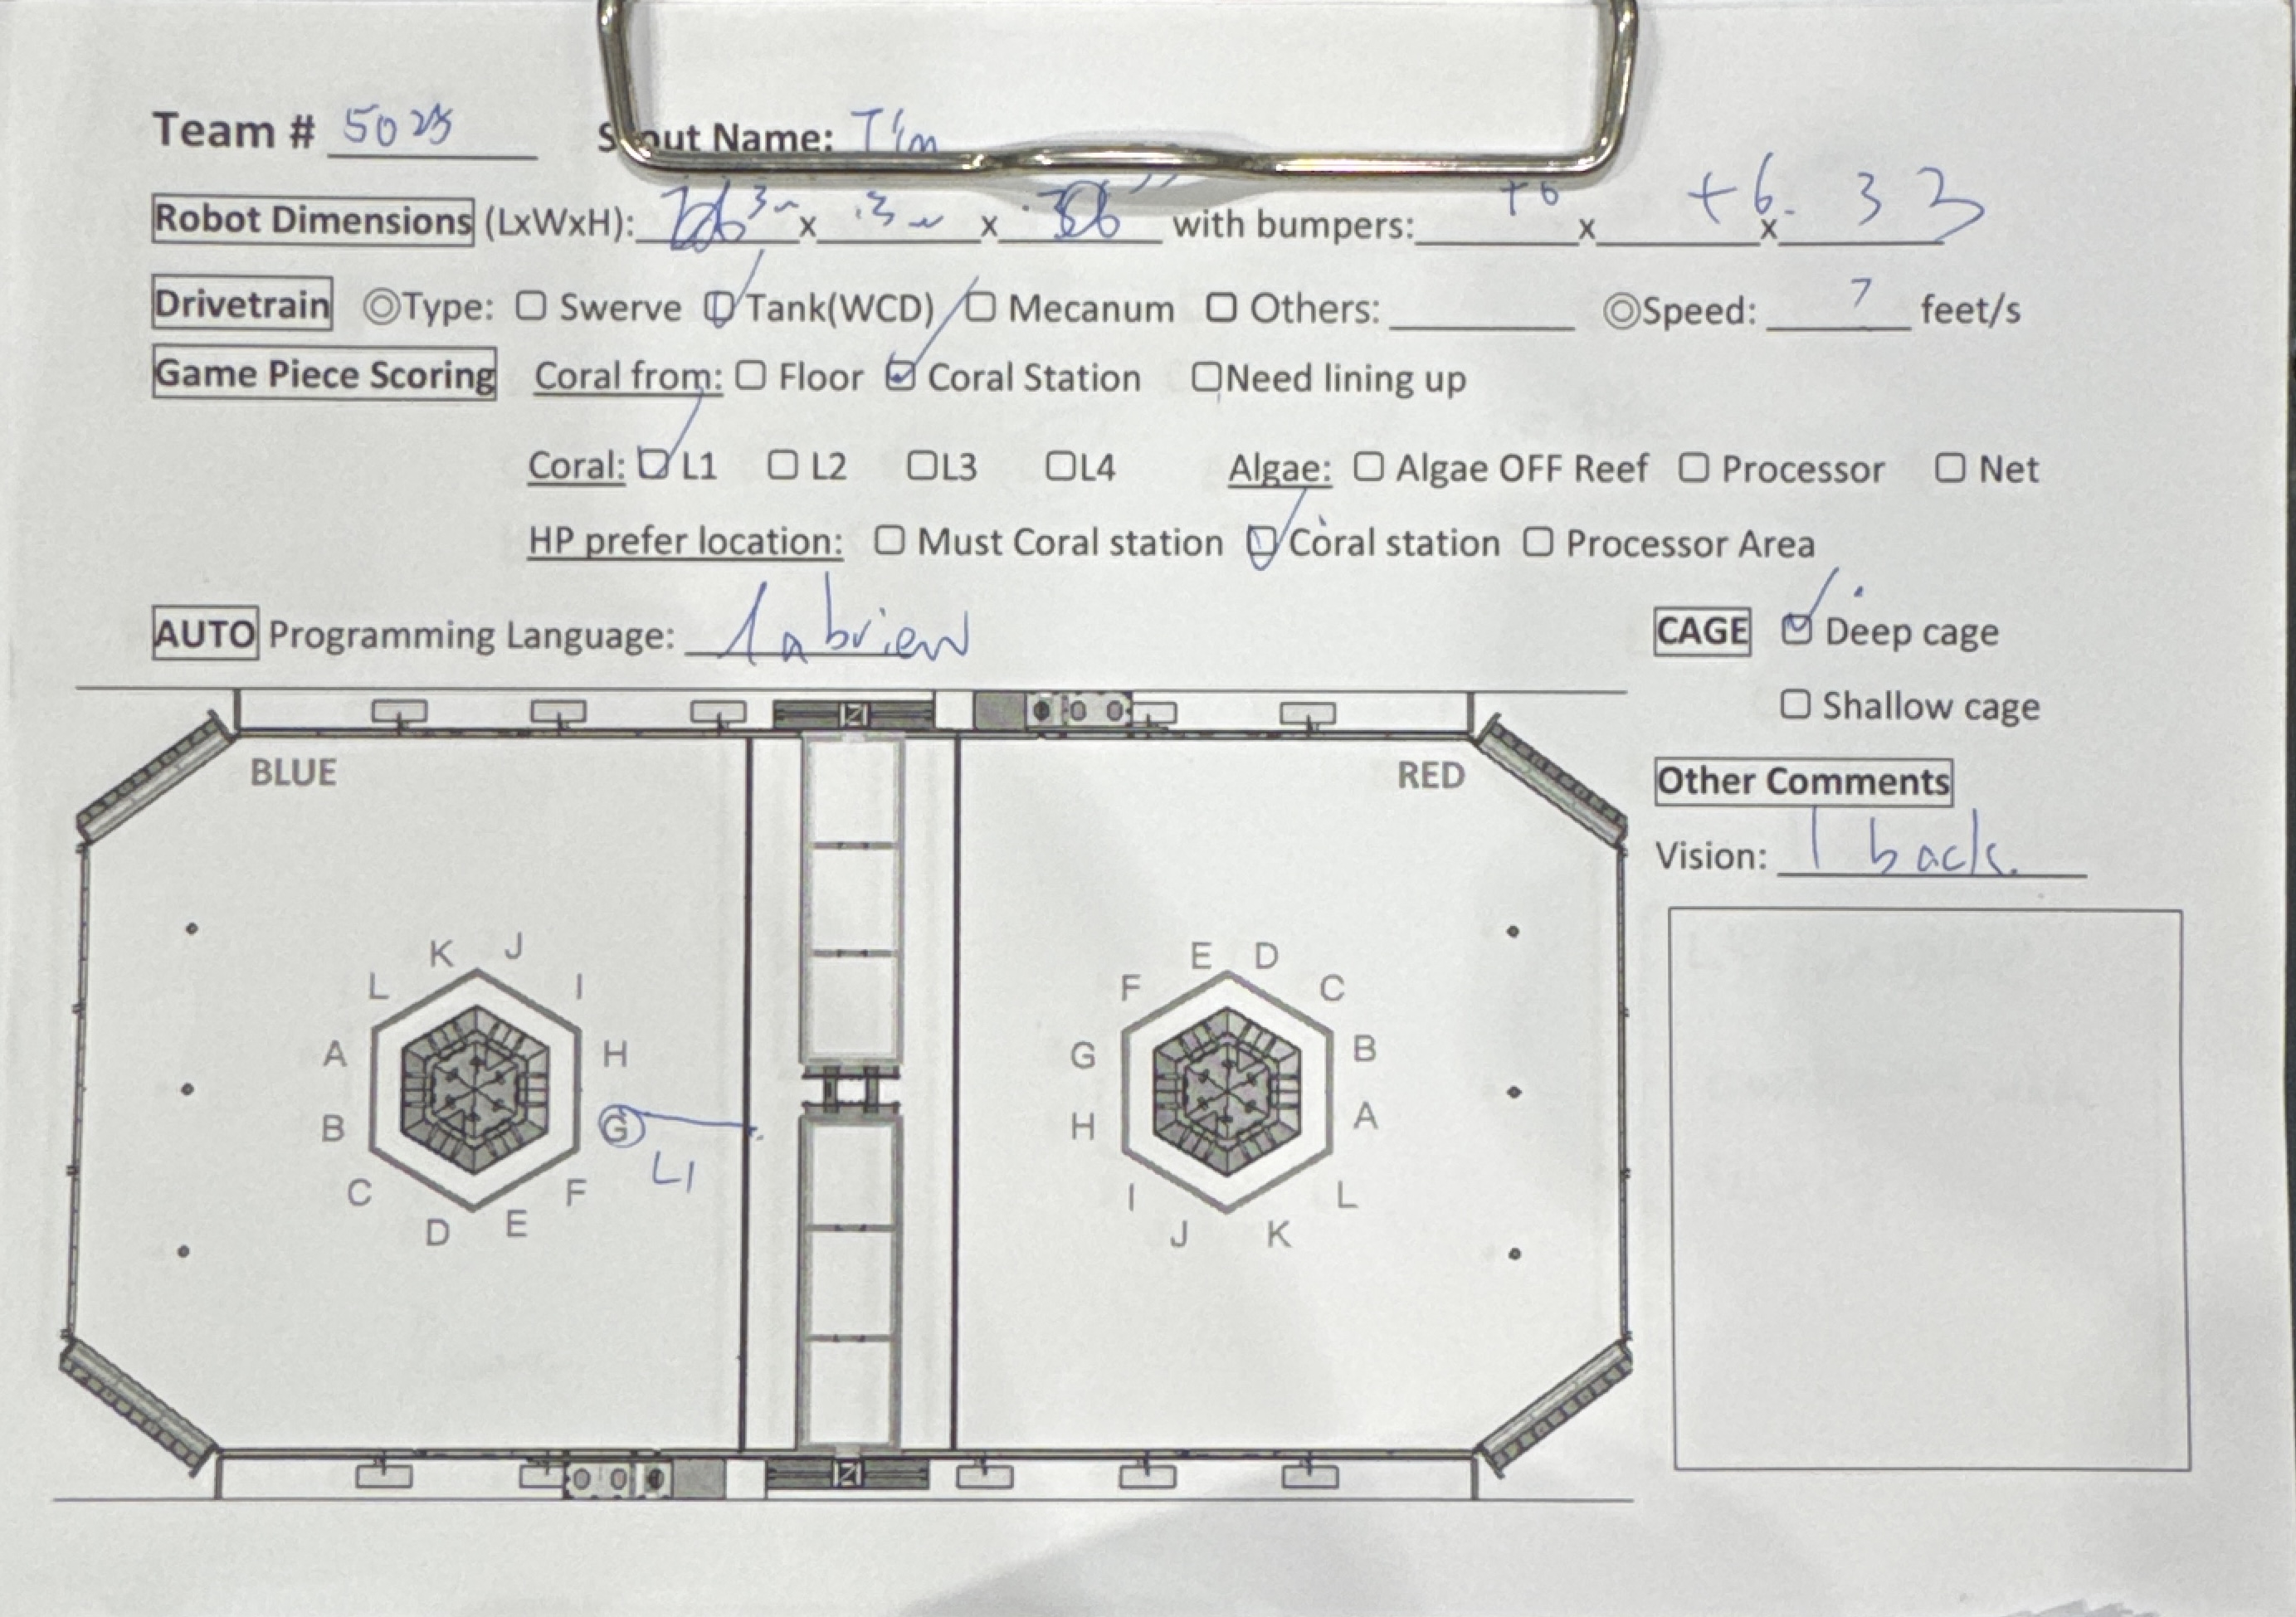 Team # Scout Name: Tim
Robot Dimensions (LxWxH): x x with bumpers: +6 x +6 x 33
Drivetrain ◎Type: ☐ Swerve ☑ Tank(WCD) ☐ Mecanum ☐ Others: ◎Speed: 7 feet/s
Game Piece Scoring Coral from: ☐ Floor ☑ Coral Station ☐Need lining up
Coral: ☑ L1 ☐ L2 ☐L3 ☐L4 Algae: ☐ Algae OFF Reef ☐ Processor ☐ Net
HP prefer location: ☐ Must Coral station ☑ Coral station ☐ Processor Area
AUTO Programming Language: labview
CAGE ☑ Deep cage
☐ Shallow cage
BLUE
RED
Other Comments
Vision: 1 back.
K J
L I
A H
B G
L1
C F
D E
E D
F C
G B
H A
I L
J K